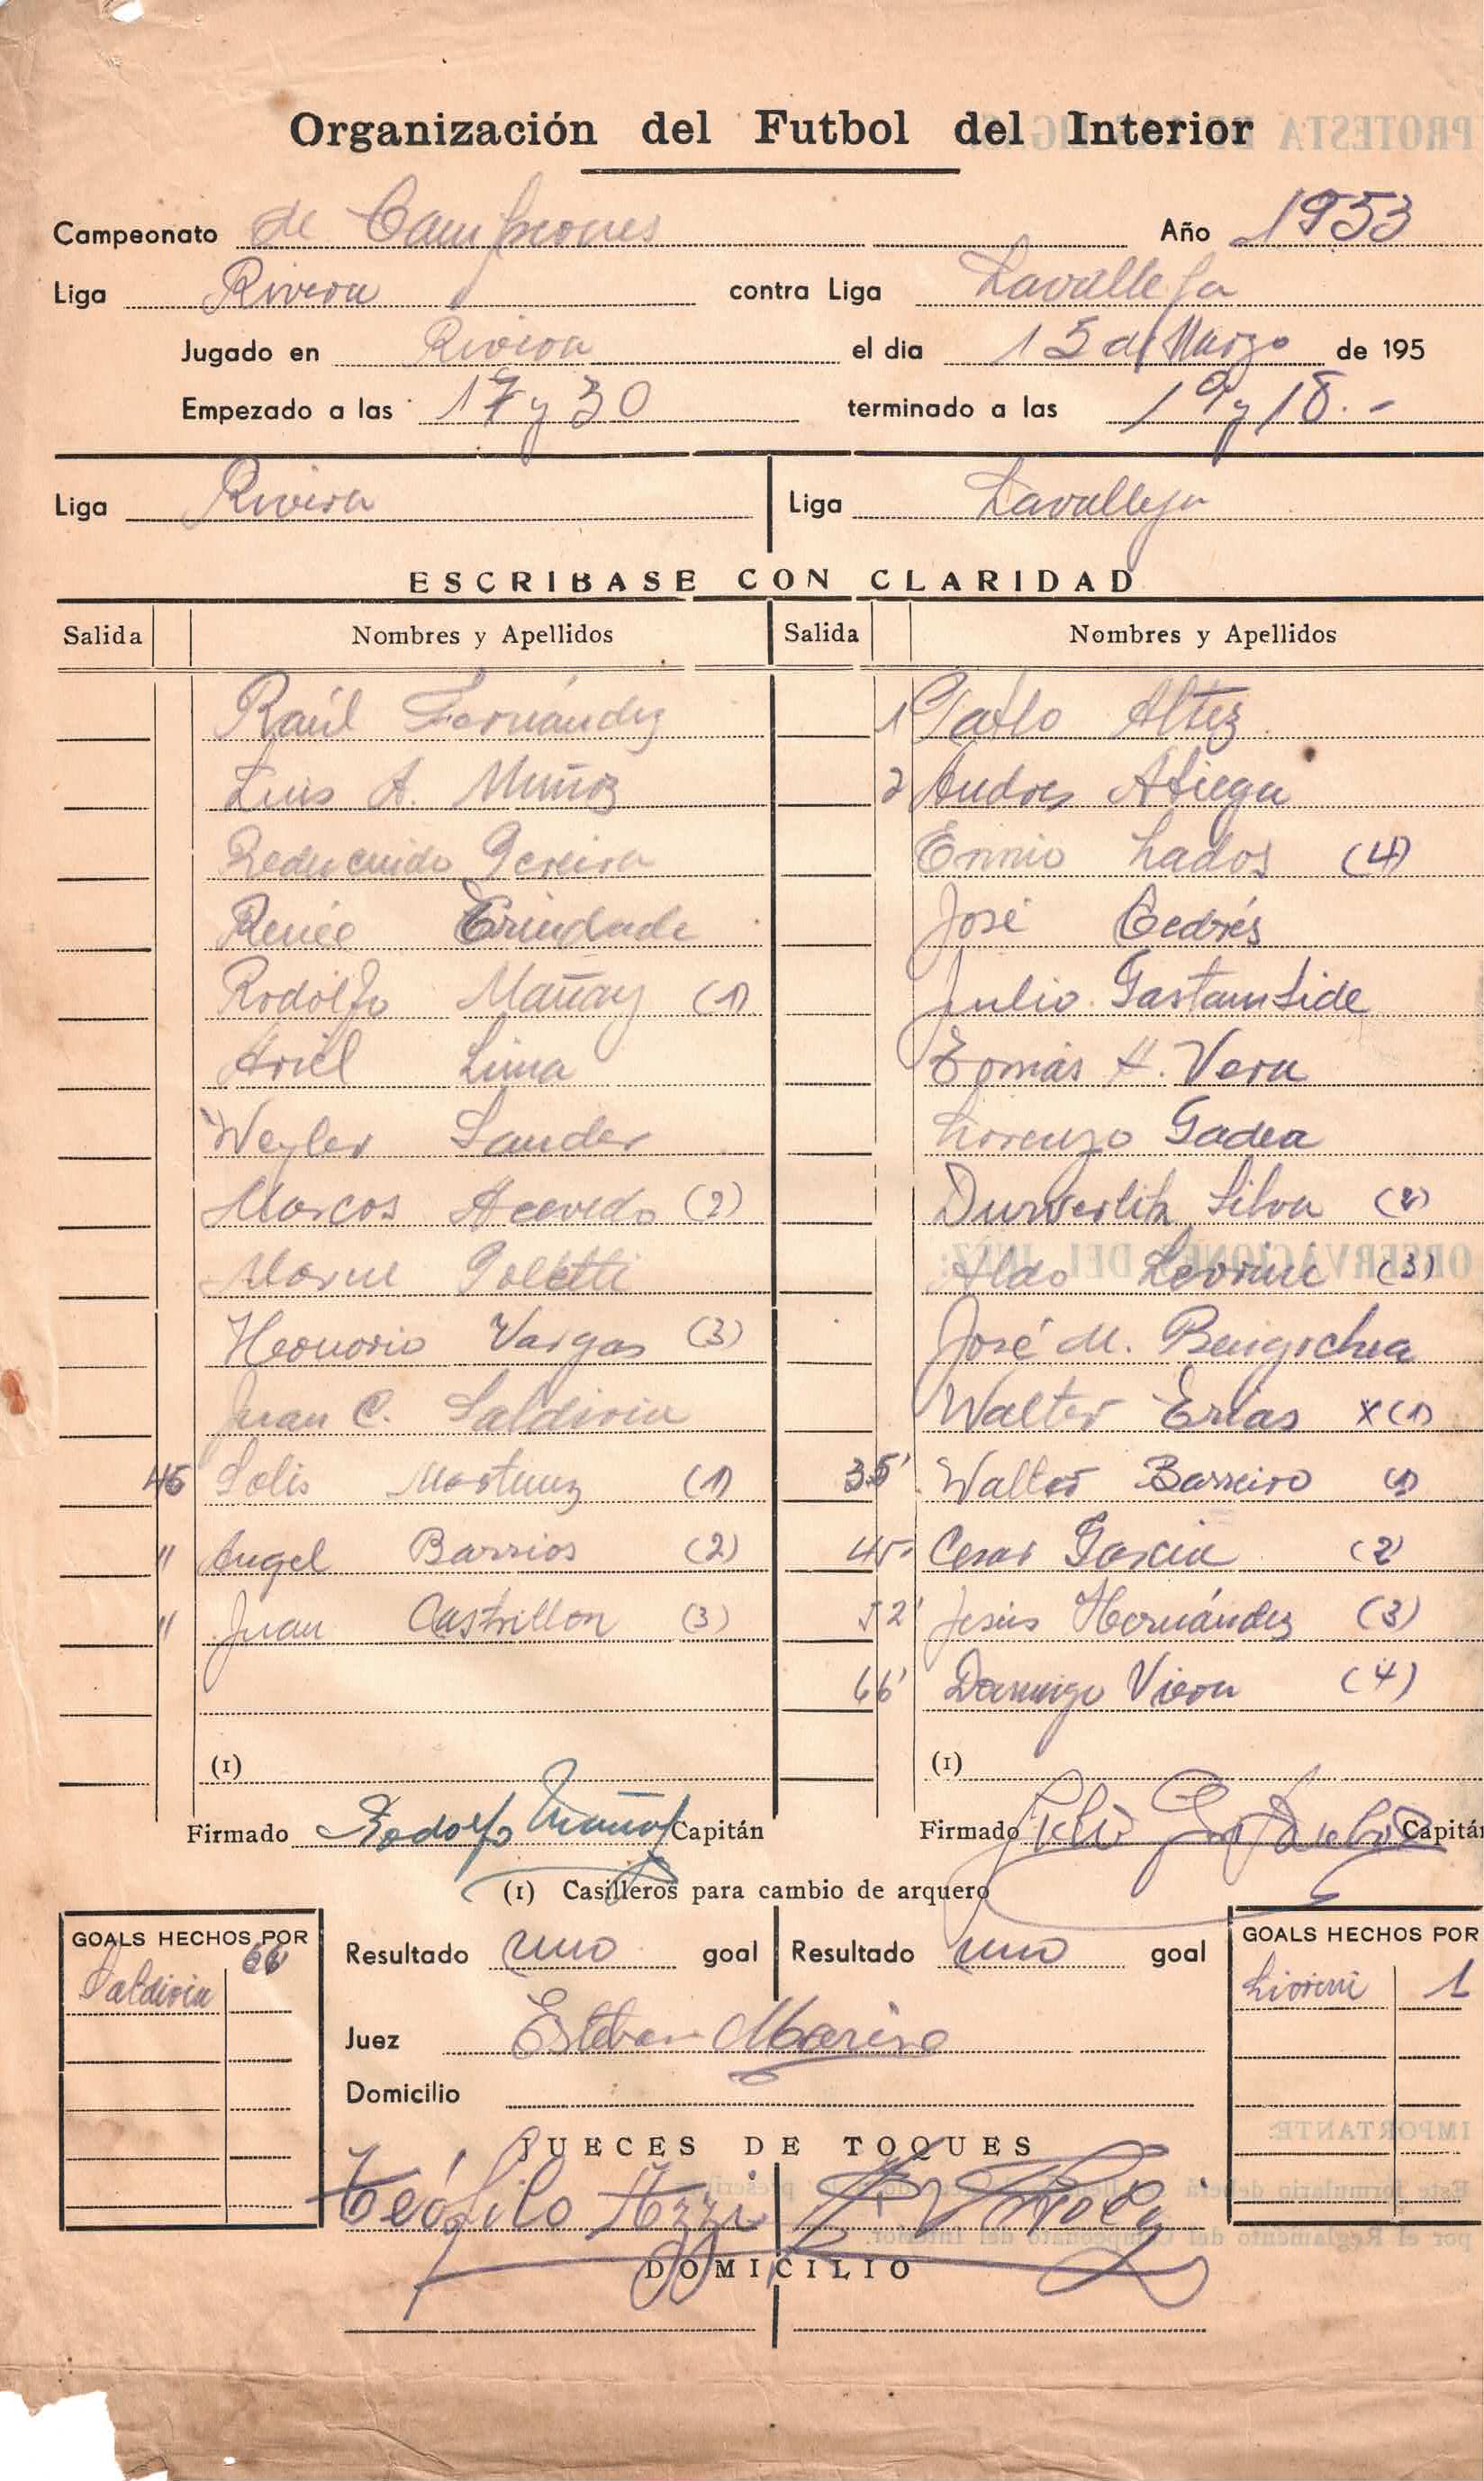 Organización del Futbol del Interior
Campeonato de Campeones Año 1953
Liga Rivera contra Liga Lavalleja
Jugado en Rivera el dia 15 de Marzo de 195
Empezado a las 17 y 30 terminado a las 19 y 18.-
Liga Rivera Liga Lavalleja
ESCRIBASE CON CLARIDAD
Salida Nombres y Apellidos Salida Nombres y Apellidos
Raúl Fernández 1 Pablo Altez
Luis A. Muñoz 2 Andres
Pereira Ennio Lados (4)
Renée Trindade José Cedrés
Rodolfo Mañay (1) Julio Gastambide
Ariel Lima Tomás H. Vera
Weyler Sander Lorenzo Gadea
Marcos Acevedo (2) Silva (2)
Poletti Aldo (3)
Honorio Vargas (3) José M. Bengochea
Juan C. Saldivia Walter Erias x (1)
45 Solis Martinez (1) 35' Walter Barreiro (1)
" Angel Barrios (2) 45' Cesar Garcia (2)
" Juan Castrillon (3) 52' Jesús Hernández (3)
66' Domingo Viera (4)
(1) (1)
Firmado Rodolfo Capitán Firmado Capitán
(1) Casilleros para cambio de arquero
GOALS HECHOS POR Resultado uno goal Resultado uno goal GOALS HECHOS POR
Saldivia 66 1
Juez Esteban Marino
Domicilio
JUECES DE TOQUES
Teófilo
DOMICILIO